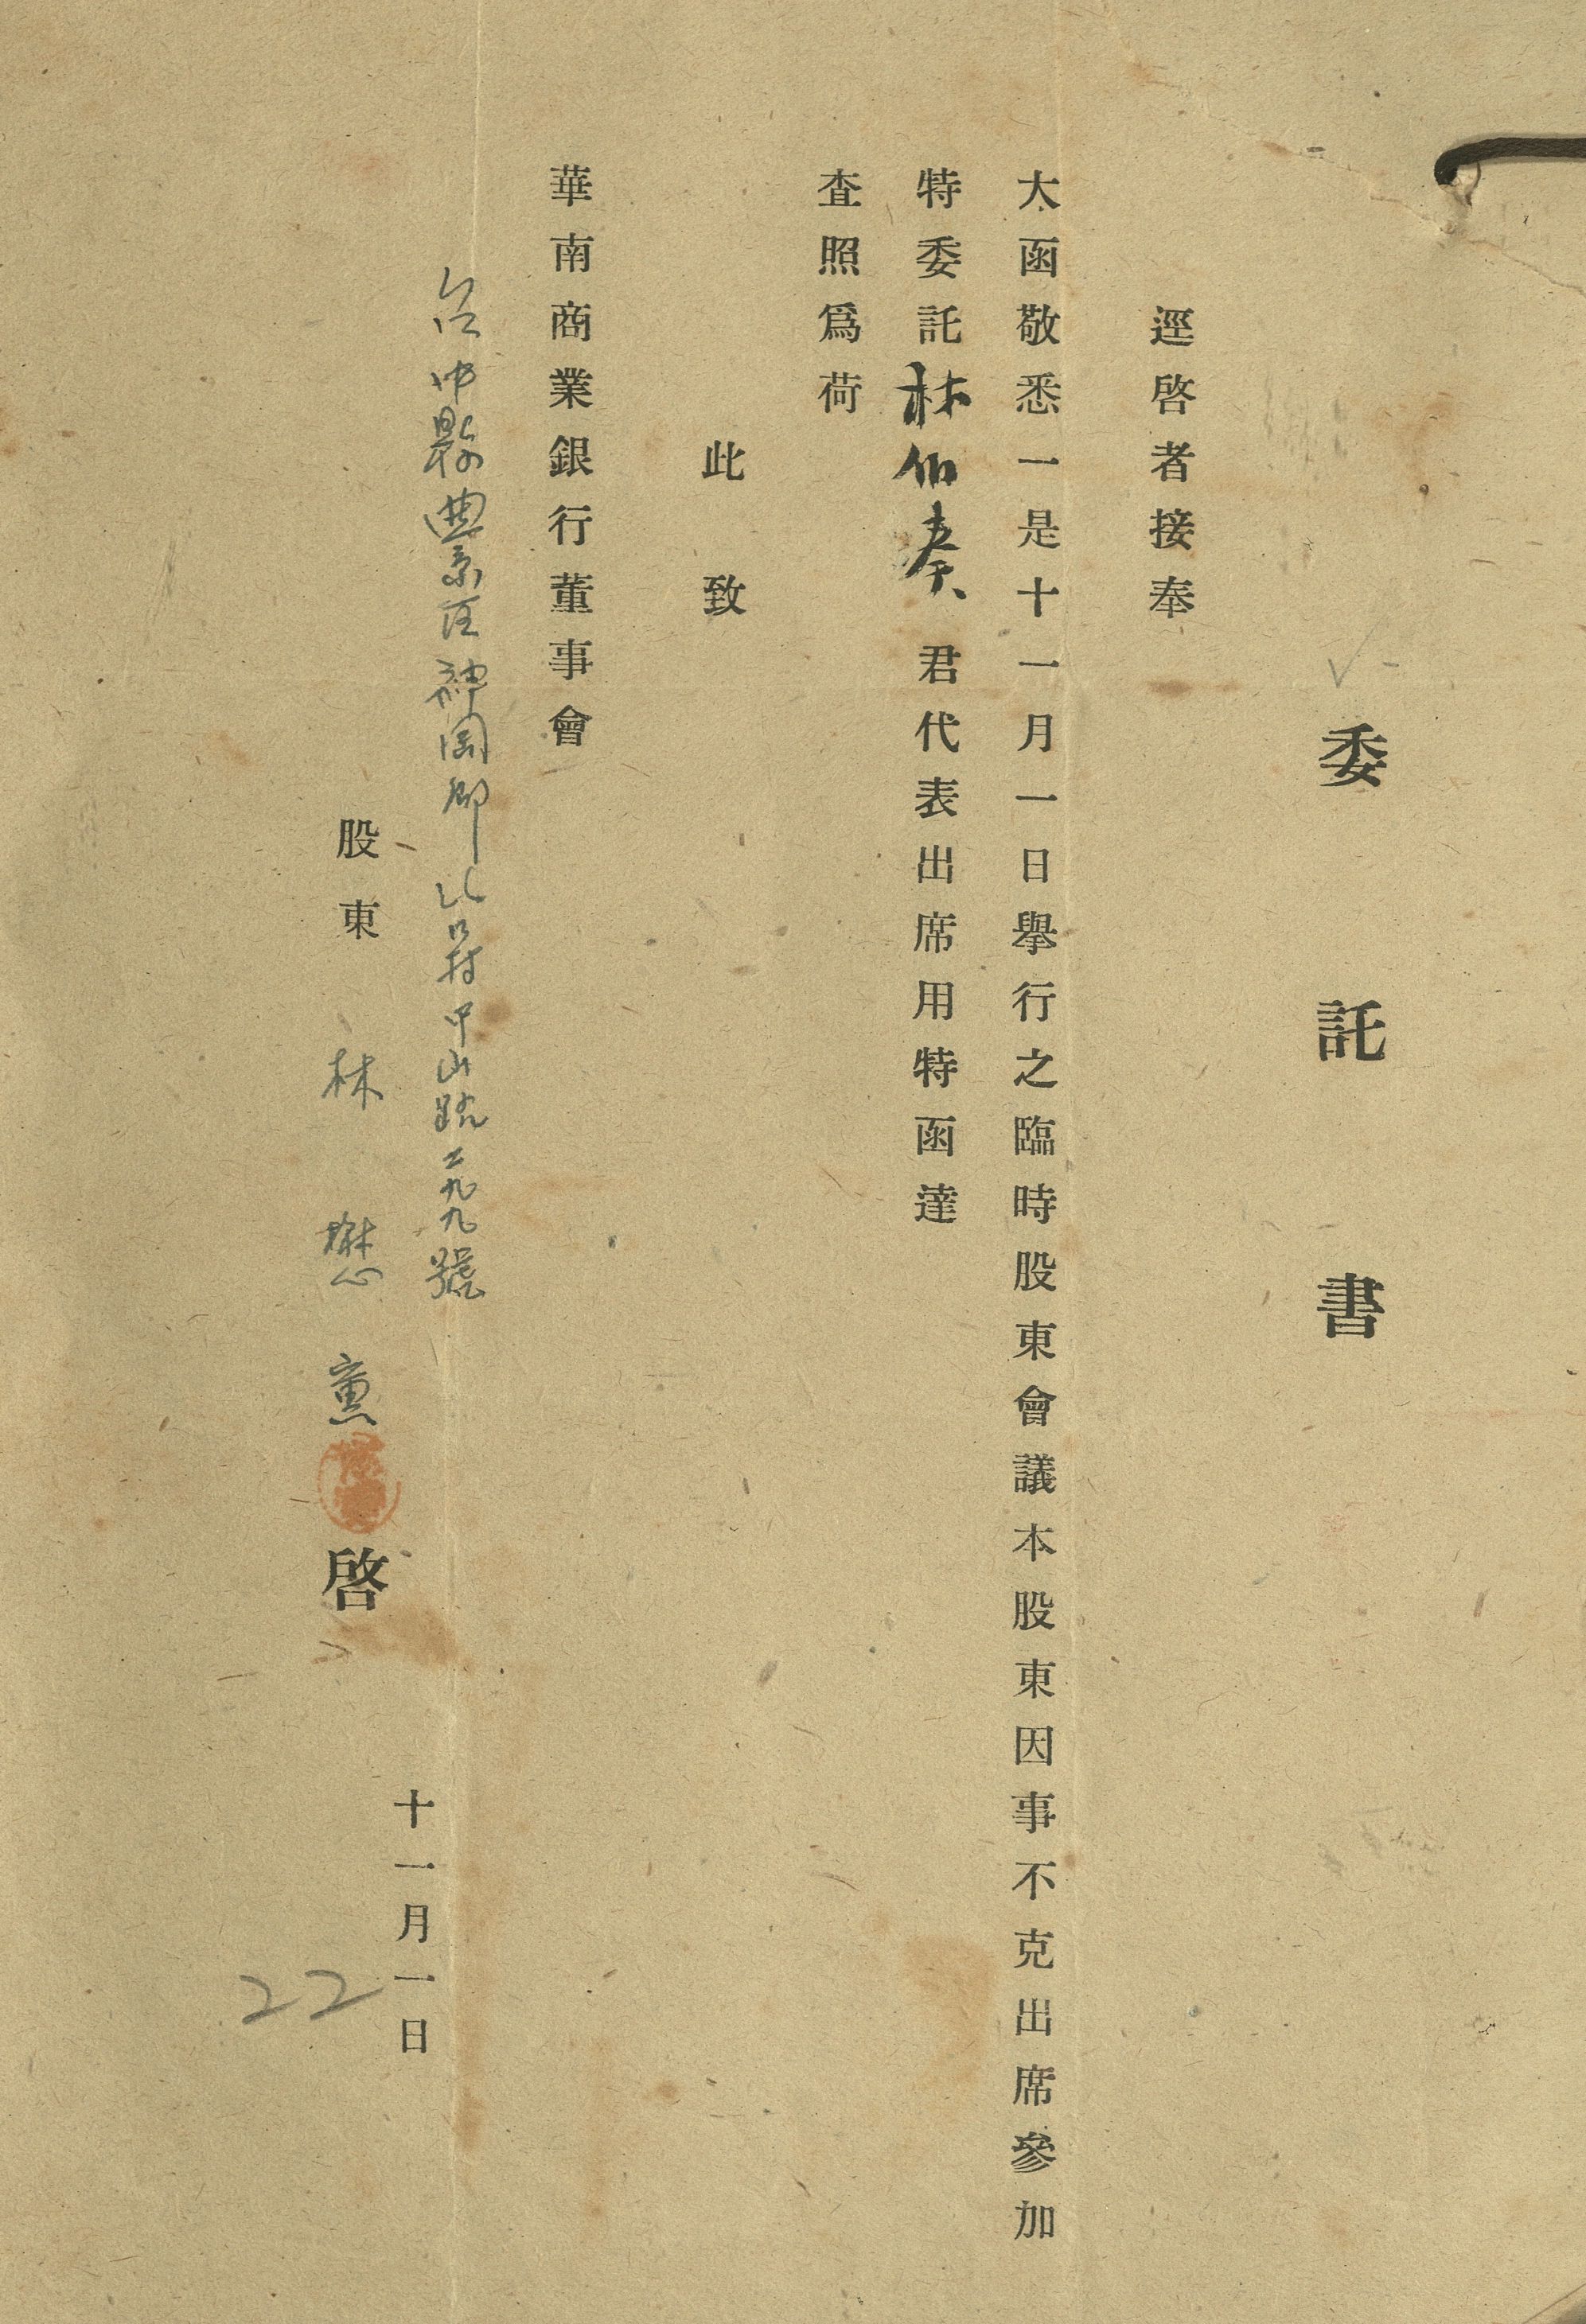 委託書
逕啓者接奉
大函敬悉一是十一月一日舉行之臨時股東會議本股東因事不克出席參加
特委託林伯奏君代表出席用特函達
查照爲荷
此致
華南商業銀行董事會
台中縣豐原區神岡鄉北庄村中山路二九九號
股東 林懋熏 啓
十一月一日
22